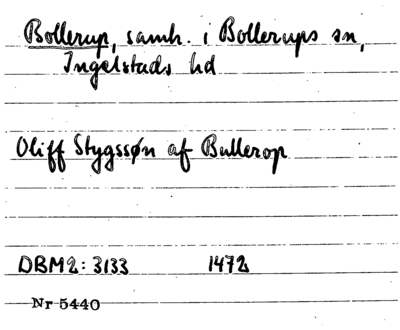 Bollerup, samh. i Bollerups sn,
Ingelstads hd
Oliff Stygssøn af Bullerop
DBM2: 3133 1472
Nr 5440